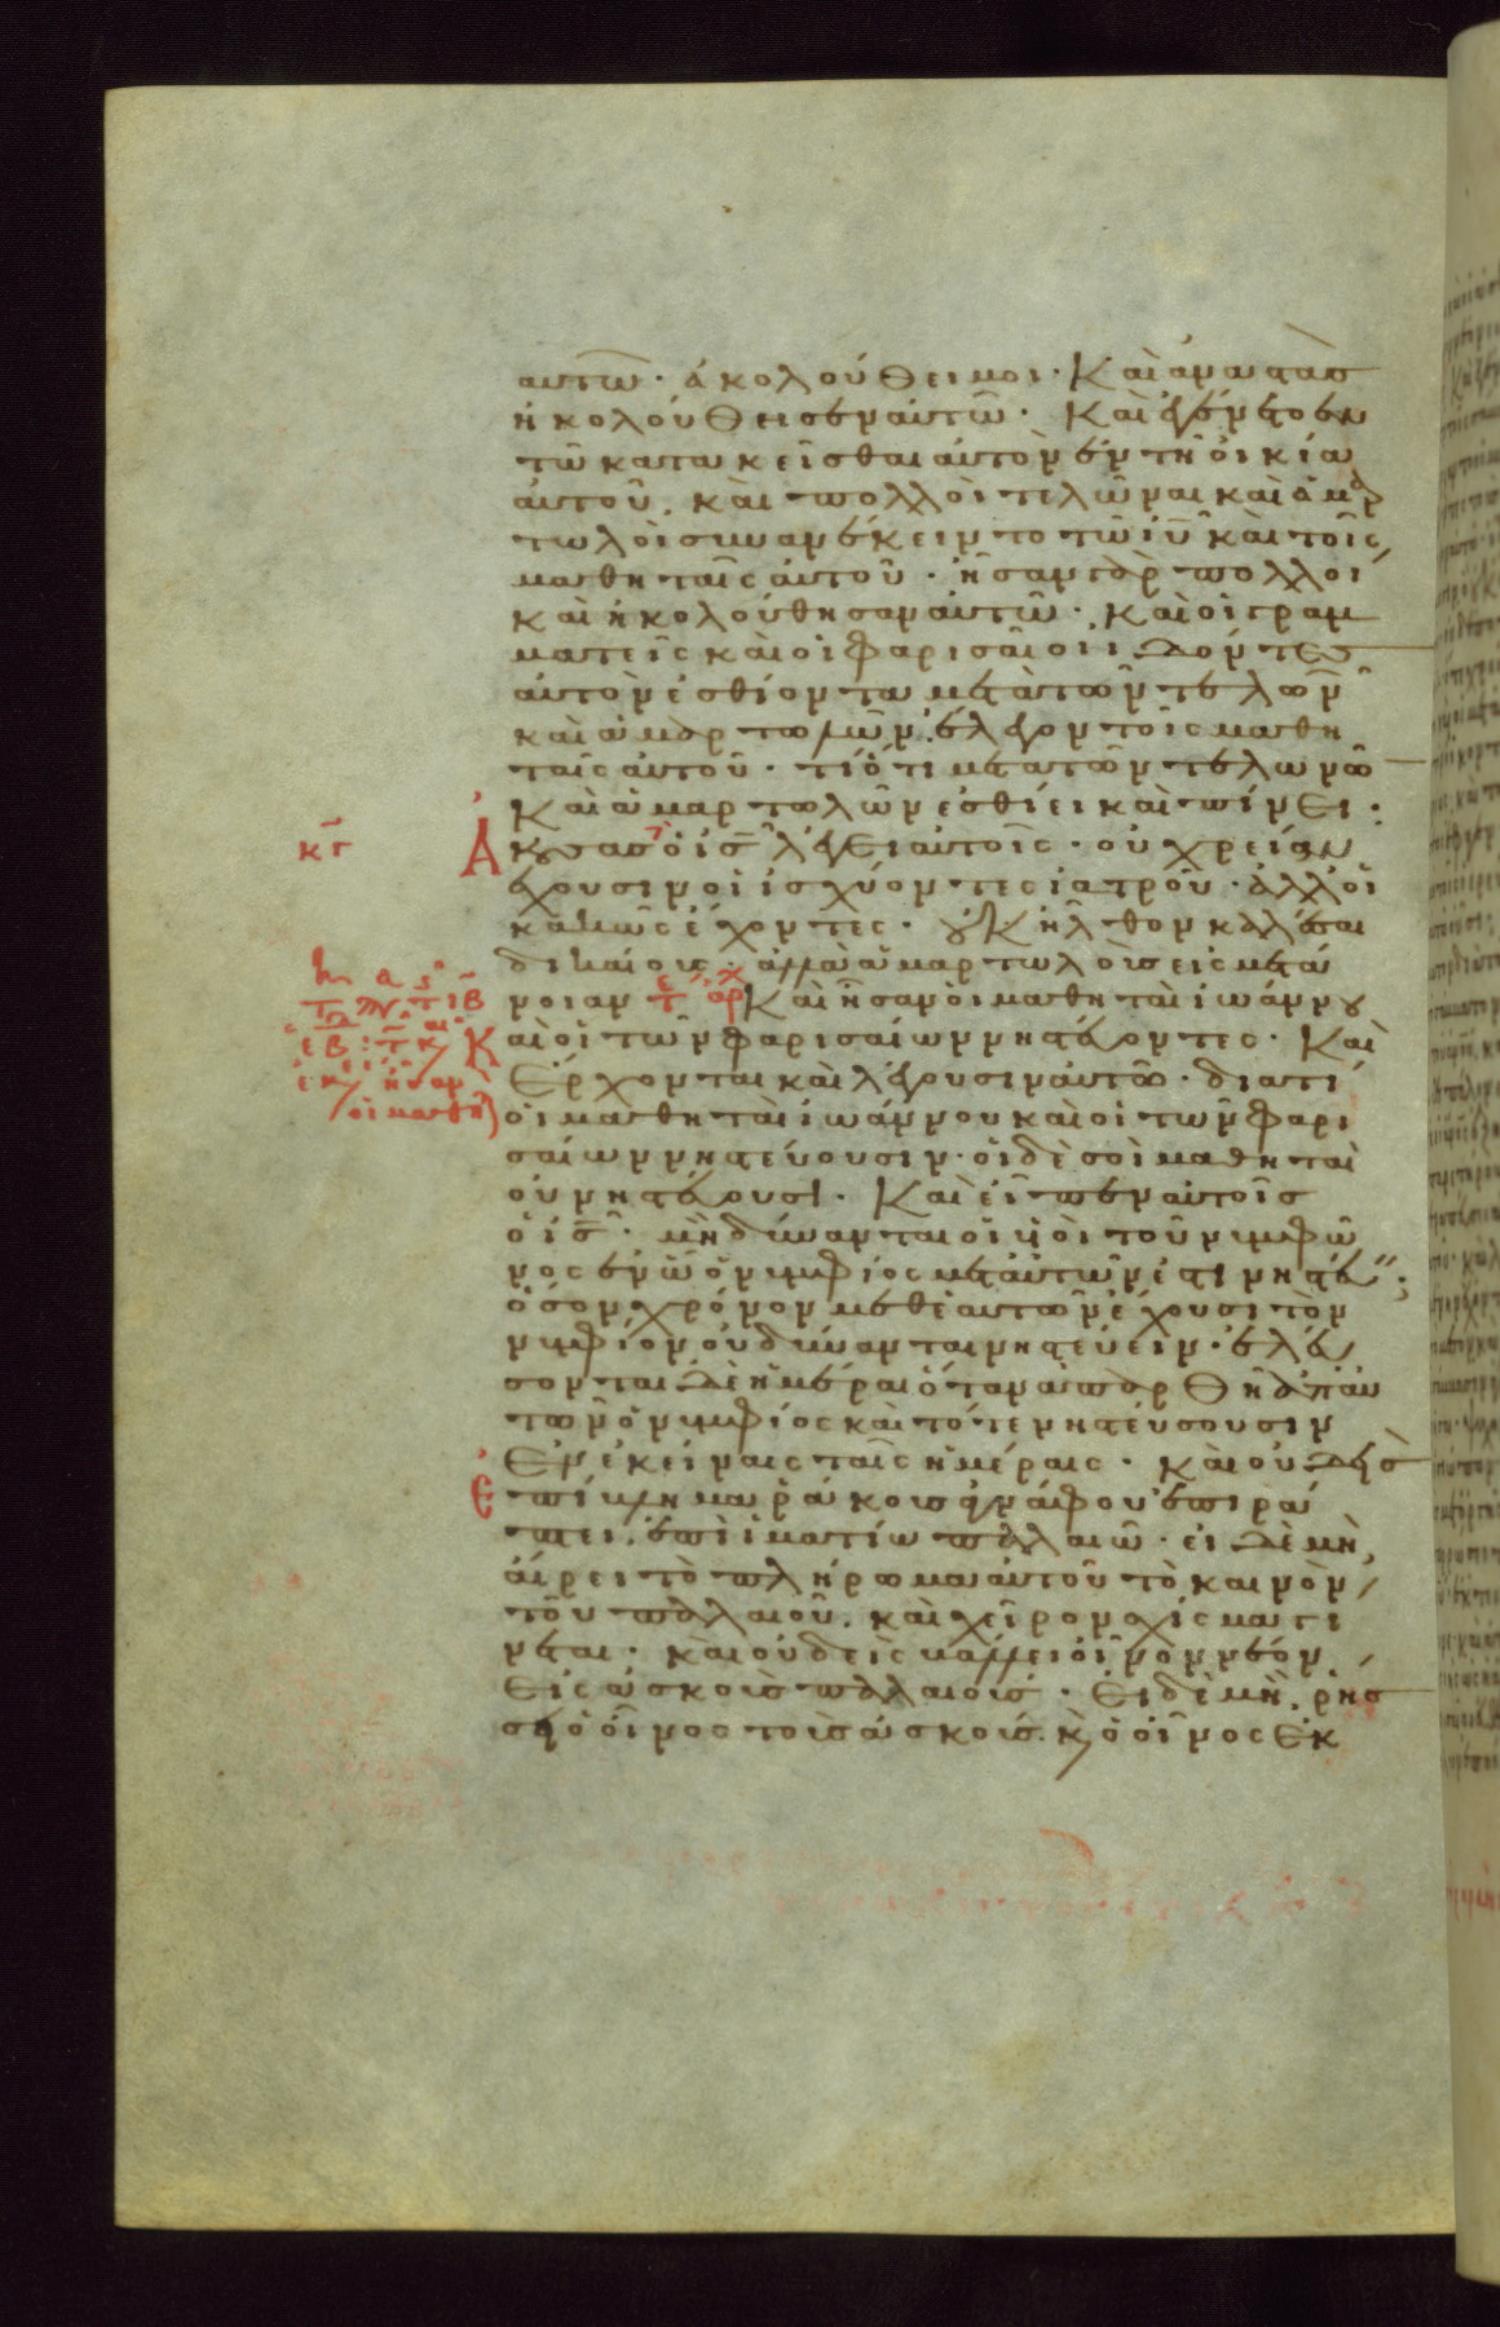 αυτῶ· ἀκολούθει μοι· Καὶ ἀναστὰσ
ἠκολούθησεν αὐτῶ· Καὶ ἐγένετο ἐν
τῶ κατακεῖσθαι αὐτὸν ἐν τῆ οἰκία
αὐτοῦ. καὶ πολλοὶ τελῶναι καὶ ἁμαρ
τωλοὶ συνανέκειντο τῶ ιυ καὶ τοῖς
μαθηταῖς αὐτοῦ· ἦσαν γὰρ πολλοί
καὶ ἠκολούθησαν αὐτῶ· καὶ οἱ γραμ
ματεῖς καὶ οἱ φαρισαῖοι ἰδόντεσ
αὐτὸν ἐσθίοντα μετὰ τῶν τελωνῶν
καὶ ἁμαρτωλῶν. ἔλεγον τοῖς μαθη
ταῖς αὐτοῦ· τί ὅτι μετὰ τῶν τελωνῶ
Καὶ ἁμαρτωλῶν ἐσθίει καὶ πίνει·
κγ Ἀκούσασ ὁ ισ λέγει αὐτοῖς· οὐ χρείαν
ἔχουσιν οἱ ἰσχύοντες ἰατροῦ· ἀλλ οἱ
κακῶς ἔχοντες· οὐκ ἦλθον καλέσαι
δικαίους· ἀλλὰ ἁμαρτωλοὺσ εἰς μετά
νοιαν τε αρχ Καὶ ἦσαν οἱ μαθηταὶ ἰωάννου
Καὶ οἱ τῶν φαρισαίων νηστεύοντες· Καὶ
ἔρχονται καὶ λέγουσιν αὐτῶ· διατί
οἱ μαθηταὶ ἰωάννου καὶ οἱ τῶν φαρι
σαίων νηστεύουσιν· οἱ δὲ σοὶ μαθηταὶ
οὐ νηστεύουσι· Καὶ εἶπεν αὐτοῖσ
ὁ ισ· μὴ δύνανται οἱ υἱοὶ τοῦ νυμφῶ
νος ἐν ὧ ὁ νυμφίος μετ αὐτῶν ἐστι νηστεύειν;
ὅσον χρόνον μεθ ἑαυτῶν ἔχουσι τὸν
νυμφίον οὐ δύνανται νηστεύειν· ἐλεύ
σονται δὲ ἡμέραι ὅταν ἀπαρθῆ ἀπ αὐ
τῶν ὁ νυμφίος καὶ τότε νηστεύσουσιν
ἐν ἐκείναις ταῖς ἡμέραις· καὶ οὐδεὶσ
Ἐπίβλημα ῥάκουσ ἀγνάφου ἐπιρά
πτει. ἐπὶ ἱματίω παλαιῶ· εἰ δὲ μὴ,
αἴρει τὸ πλήρωμα αὐτοῦ τὸ καινὸν
τοῦ παλαιοῦ. καὶ χεῖρον σχίσμα γί
νεται· καὶ οὐδεὶς βάλλει οἶνον νέον
εἰς ἀσκοὺσ παλαιούσ· εἰ δὲ μὴ. ῥήσ
σει ὁ οἶνος τοὺσ ἀσκούσ. κ ὁ οἶνος ἐκ